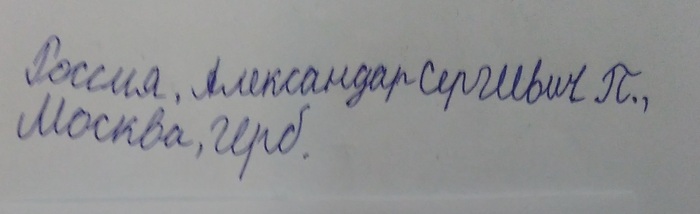 Россия, Александар Сергиевич П.,
Москва, герб.